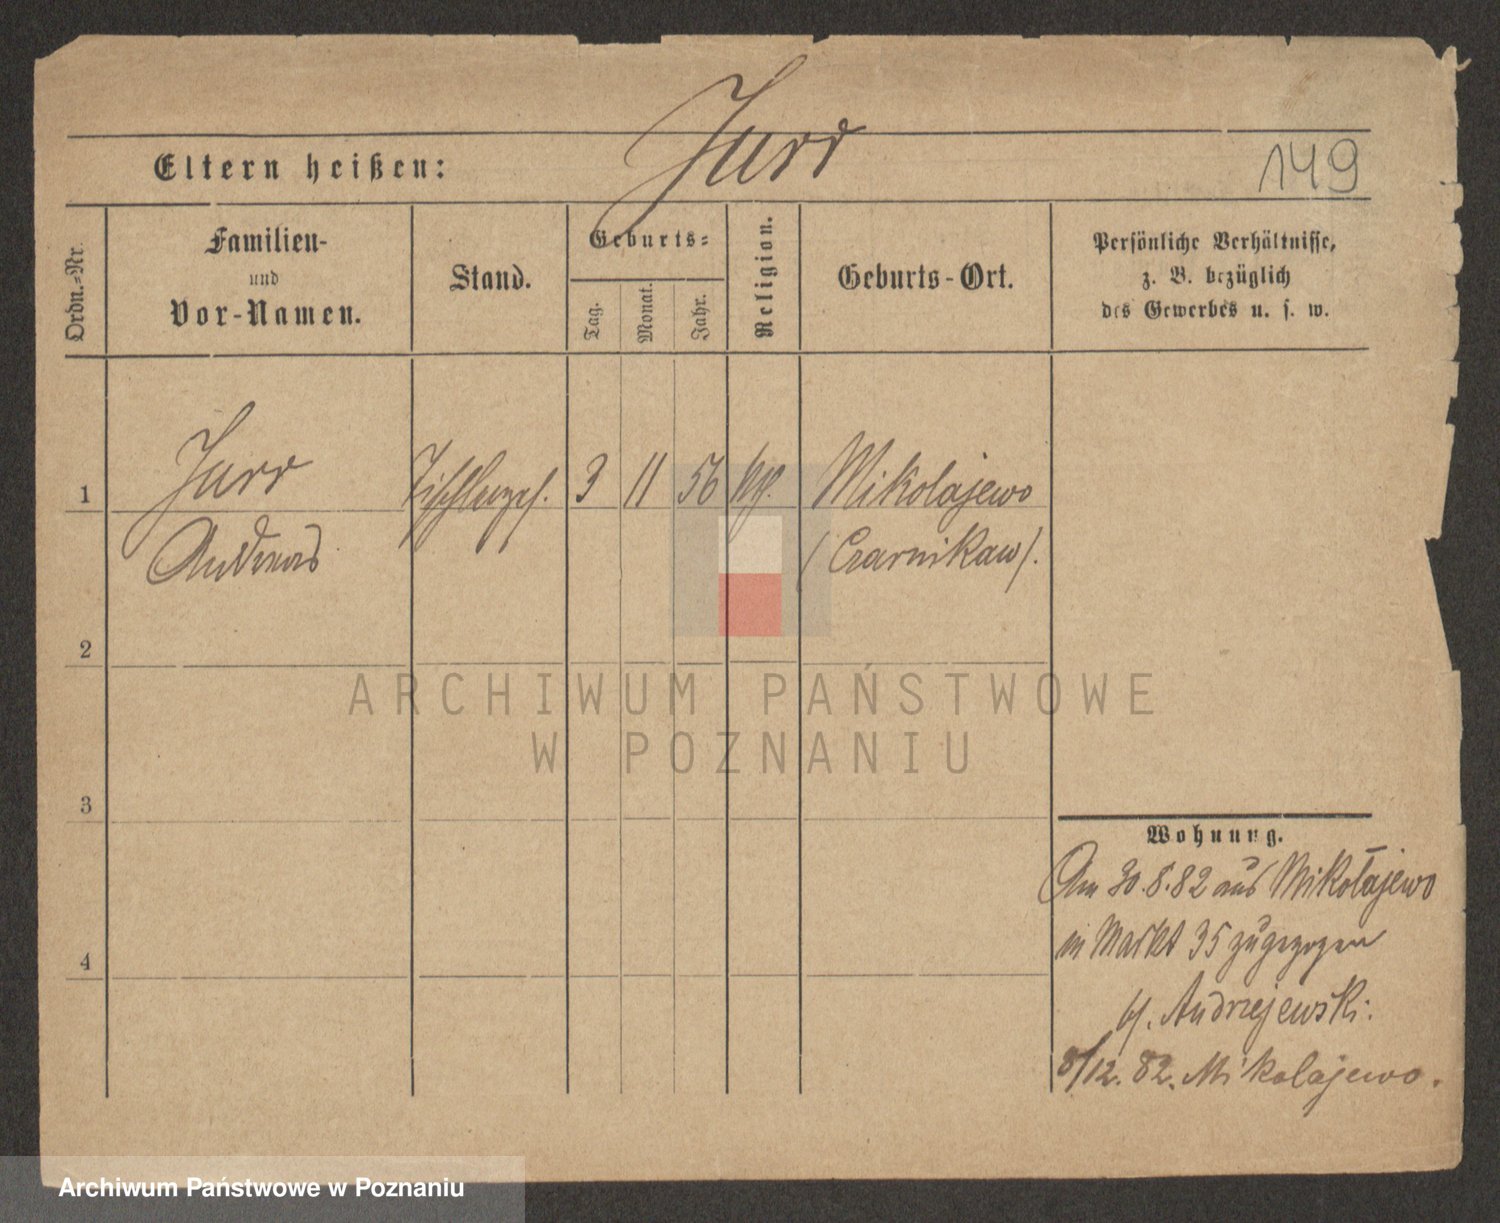 Jurr
149
Eltern heißen:
Ordn.-Nr.
Familien-
und
Vor-Namen.
Stand.
Geburts-
Tag.
Monat.
Jahr.
Religion.
Geburts-Ort.
Persönliche Verhältnisse,
z. B. bezüglich
des Gewerbes u. s. w.
1
Jurr
Andreas
Tischlerges.
3
11
56
Mikolajewo
(Czarnikau).
2
3
4
Wohnung.
Am 30.8.82 aus Mikołajewo
in Markt 35 zugezogen
b/. Andrzejewski.
8/12. 82. Mikolajewo.
ARCHIWUM PAŃSTWOWE
W POZNANIU
Archiwum Państwowe w Poznaniu